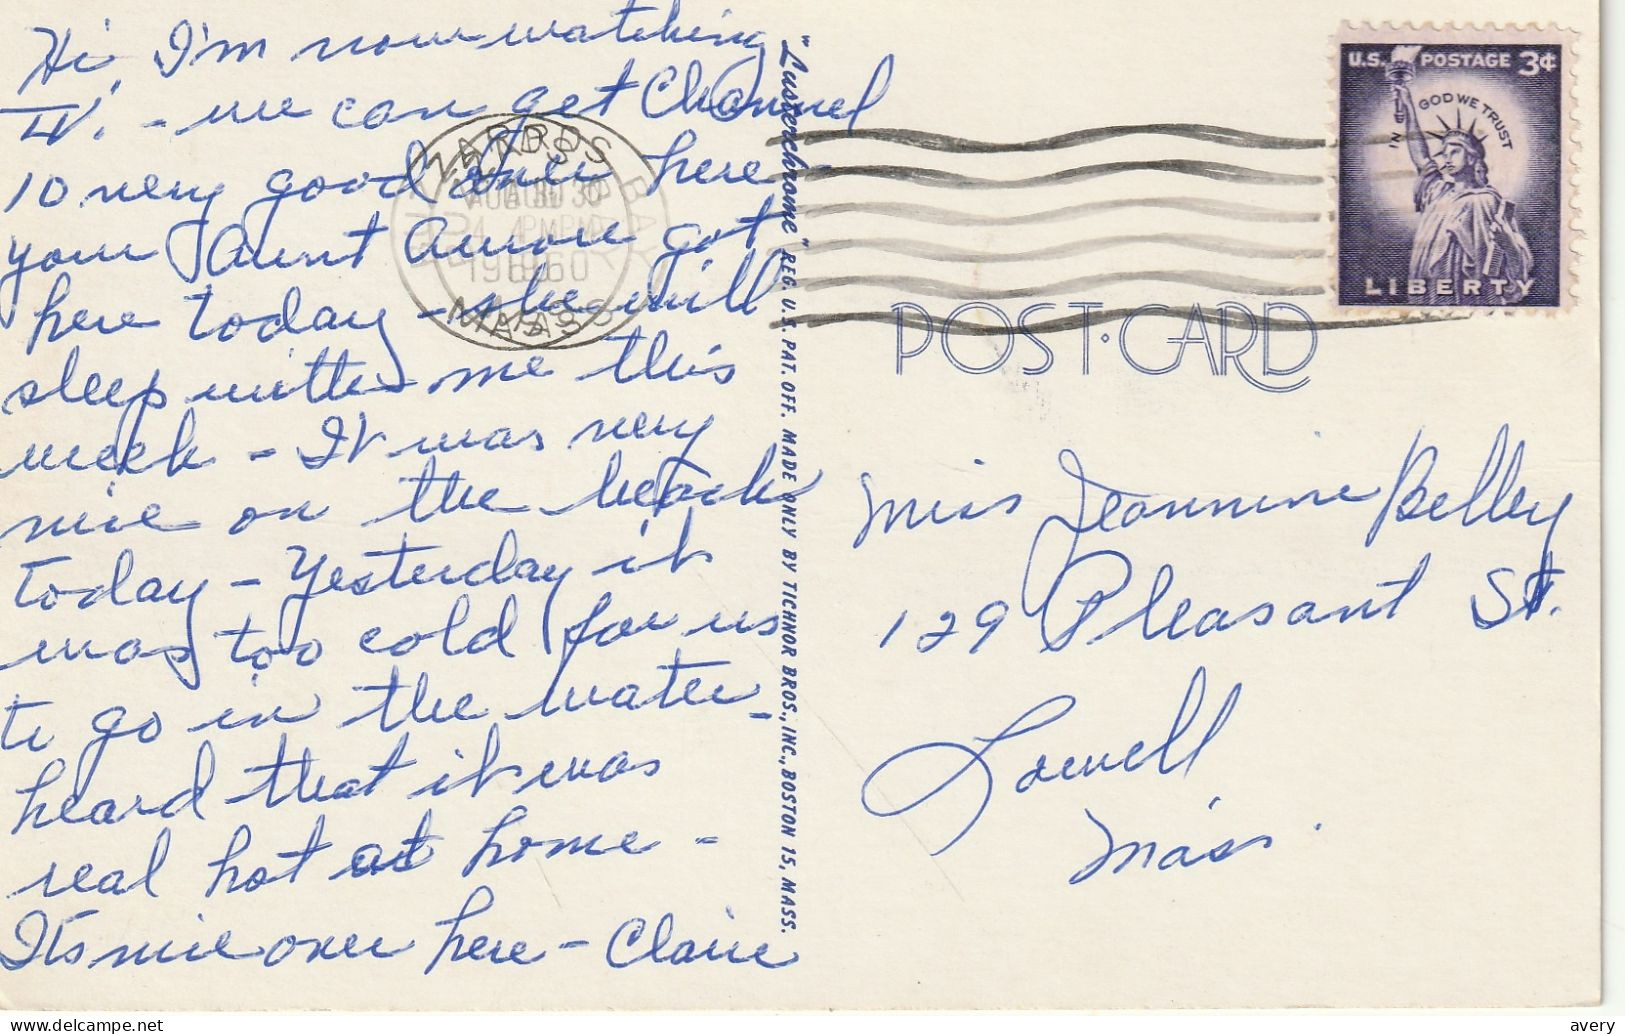 Hi, I'm now watching
TV. - we can get Channel
10 very good over here
your Aunt got
here today - she will
sleep with me this
week - It was very
nice on the beach
today - Yesterday it
was too cold for us
to go in the water -
heard that it was
real hot at home -
It's nice over here - Claire
"Lusterchrome" REG. U.S. PAT. OFF. MADE ONLY BY TICHNOR BROS., INC., BOSTON 15, MASS.
AUG 30
4 PM
1960
MASS
U.S. POSTAGE 3¢
IN GOD WE TRUST
LIBERTY
POST·CARD
Miss Jeannine Belley
129 Pleasant St.
Lowell
Mass.
avery